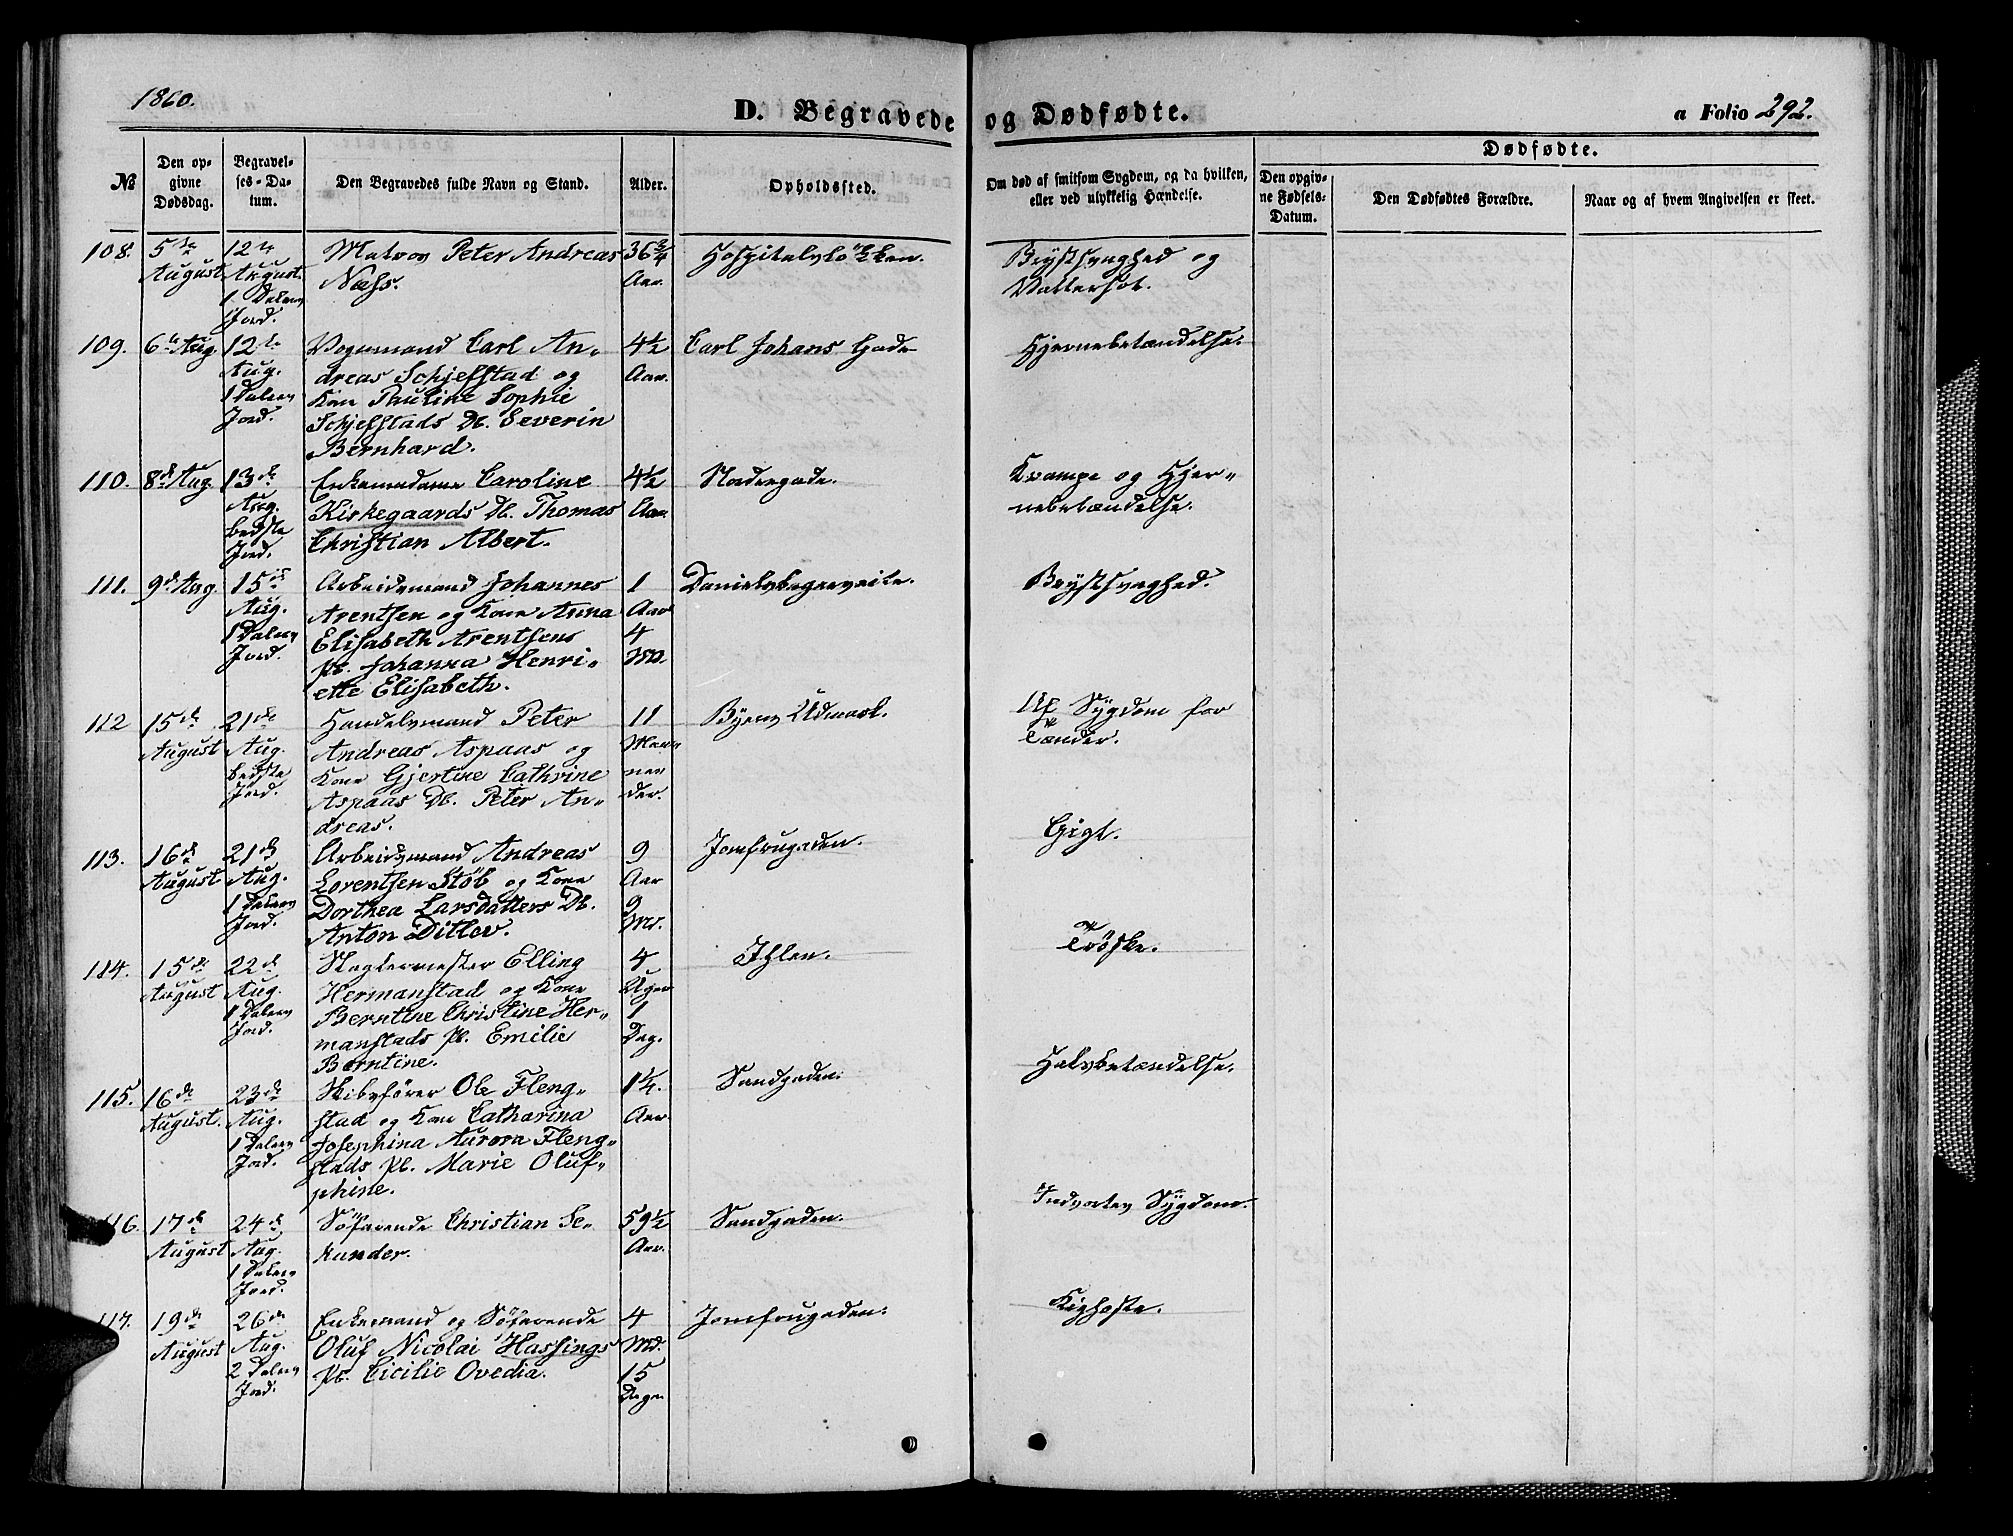 1860.
D. Begravede og Dødfødte.
a Folio 292.
№
Den op-
givne
Dødsdag.
Begravel-
ses-Da-
tum.
Den Begravedes fulde Navn og Stand.
Alder.
Opholdssted.
Om død af smitsom Sygdom, og da hvilken,
eller ved ulykkelig Hændelse.
Dødfødte.
Den opgiv-
ne Fødsels-
Datum.
Den Dødfødtes Forældre.
Naar og af hvem Angivelsen er skeet.
108.
5te
August
12te
August.
1 Dalers
Jord.
Matros Peter Andreas
Næss.
36 3/4
Aar.
Hospitalsløkken.
Brystsvaghed og
Vattersot.
109.
6te Aug.
12te
Aug.
1 Dalers
Jord.
Vognmand Carl An-
dreas Schjefstad og
Kone Thuline Sophie
Schjefstads Db. Severin
Bernhard.
4½
Aar.
Carl Johans Gade
Hjernebetændelse.
110.
8de Aug.
13de
Aug.
bedste
Jord.
Enkemadame Caroline
Kirkegaards Db. Thomas
Christian Albert.
4½
Aar.
Nadregade.
Krampe og Hjer-
nebetændelse.
111.
9de Aug.
15de
Aug.
1 Dalers
Jord.
Arbeidsmand Johannes
Arentsen og Kone Anna
Elisabeth Arentsens
Pb. Johanna Henri-
ette Elisabeth.
1
Aar
4
Md.
Danielsbagerveite.
Brystsvaghed.
112
15de
August
21de
Aug.
bedste
Jord.
Handelsmand Peter
Andreas Aspaas og
Kone Gjertine Cathrine
Aspaas Db. Peter An-
dreas.
11
Maa-
ne-
der.
Byens Udmark.
Af Sygdom for
Tænder.
113.
16de
August.
21de
Aug.
1 Dalers
Jord.
Arbeidsmand Andreas
Lorentsen Støb og Kone
Dorthea Larsdatters Db.
Anton Ditlev.
9
Aar
9
Md.
Jomfrugaden.
Gigt.
114.
15de
August
22de
Aug.
1 Dalers
Jord.
Slagtermester Elling
Hermanstad og Kone
Berntine Christine Her-
manstads Pb. Emilie
Berntine.
4
Uger
1
Dag.
Ihlen.
Trøske.
115.
16de
August.
23de
Aug.
1 Dalers
Jord.
Skibsfører Ole Fleng-
stad og Kone Catharina
Josephina Aurora Fleng-
stads Pb. Marie Oluf-
phine.
1¼.
Aar.
Sandgaden.
Halsbetændelse.
116.
17de
August
24de
Aug.
1 Dalers
Jord.
Søfarende Christian Se-
kunder.
59½
Aar.
Sandgaden.
Indvortes Sygdom.
117.
19de
August
26de
Aug.
2 Dalers
Jord.
Enkemand og Søfarende
Oluf Nicolai Hassings
Pb. Cicilie Ovedia.
4
Md.
15
Dage
Jomfrugaden.
Kighoste.